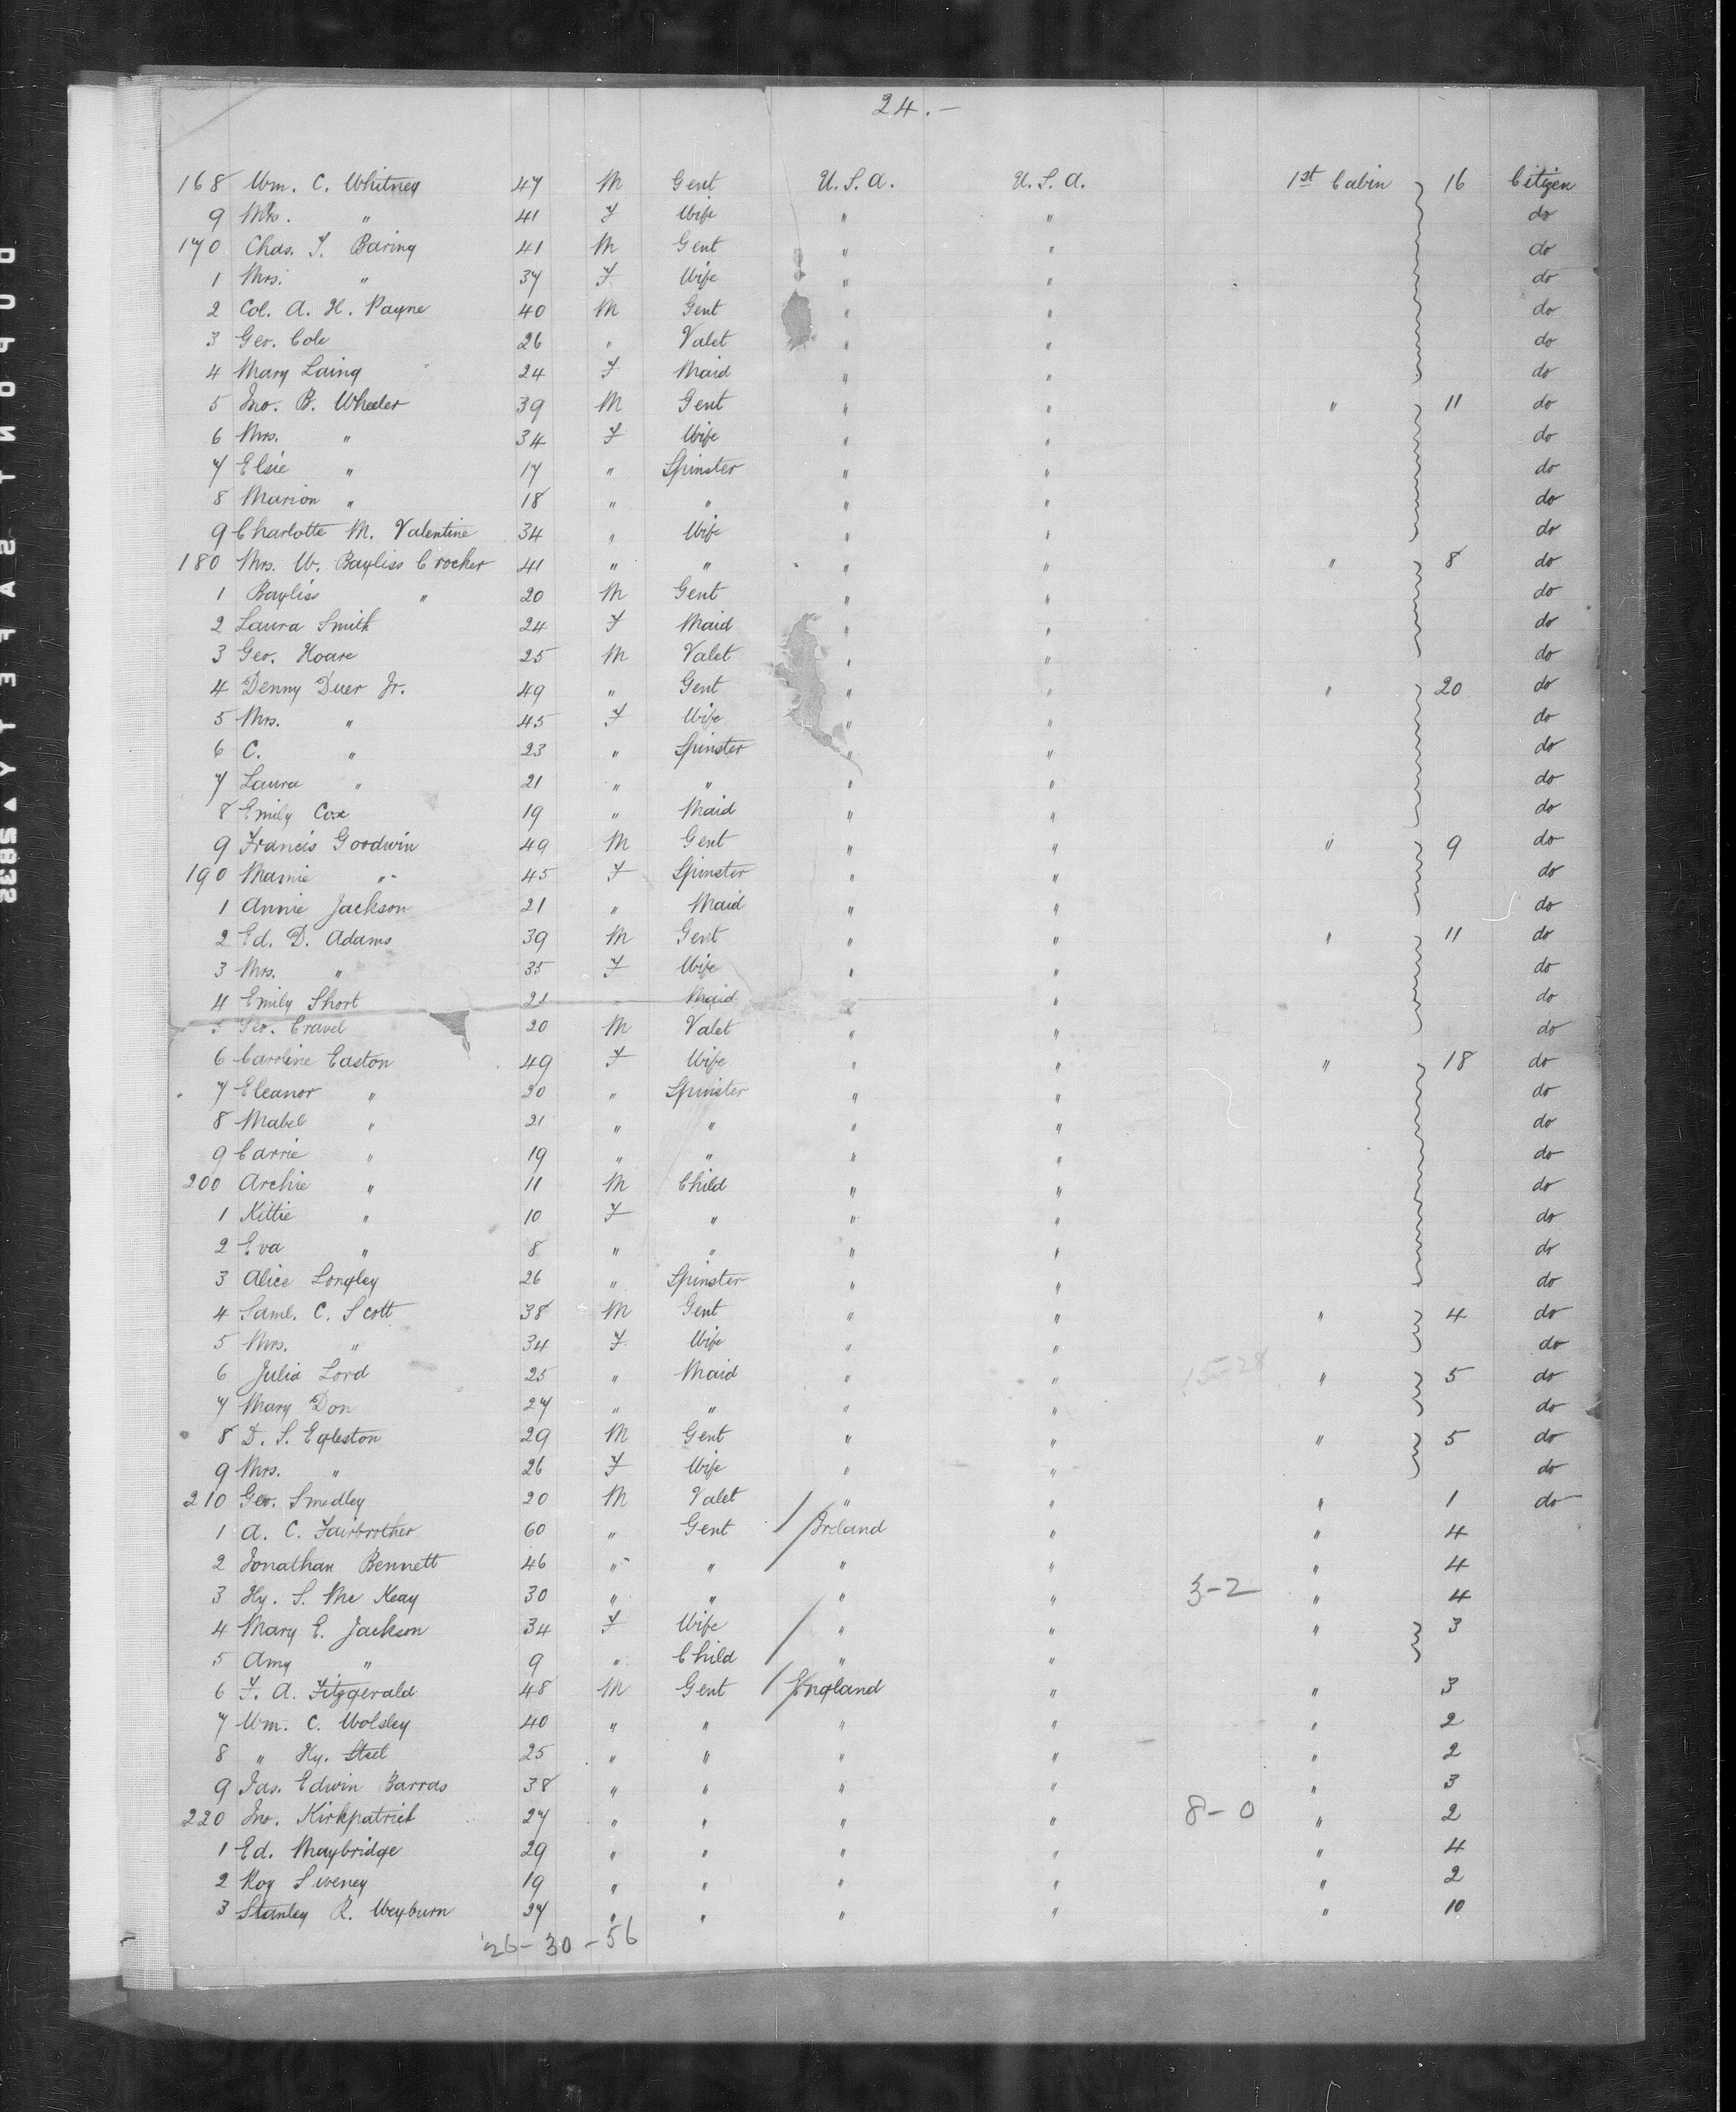 24.—
168 Wm. C. Whitney 47 M Gent U.S.A. U.S.A. 1st Cabin 16 Citizen
9 Mrs. " 41 F Wife " " do
170 Chas. T. Baring 41 M Gent " " do
1 Mrs. " 37 F Wife " " do
2 Col. A. H. Payne 40 M Gent " " do
3 Geo. Cole 26 " Valet " " do
4 Mary Laing 24 F Maid " " do
5 Jno. B. Wheeler 39 M Gent " " " 11 do
6 Mrs. " 34 F Wife " " do
7 Elsie " 17 " Spinster " " do
8 Marion " 18 " " " " do
9 Charlotte M. Valentine 34 " Wife " " do
180 Mrs. W. Bayliss Crocker 41 " " " " " 8 do
1 Bayliss " 20 M Gent " " do
2 Laura Smith 24 F Maid " " do
3 Geo. Hoare 25 M Valet " " do
4 Denny Duer Jr. 49 " Gent " " " 20 do
5 Mrs. " 45 F Wife " " do
6 C. " 23 " Spinster " " do
7 Laura " 21 " " " " do
8 Emily Cox 19 " Maid " " do
9 Francis Goodwin 49 M Gent " " " 9 do
190 Mamie " 45 F Spinster " " do
1 Annie Jackson 21 " Maid " " do
2 Ed. D. Adams 39 M Gent " " " 11 do
3 Mrs. " 35 F Wife " " do
4 Emily Short 21 " Maid " " do
5 Geo. Cravel 20 M Valet " " do
6 Caroline Easton 49 F Wife " " " 18 do
7 Eleanor " 20 " Spinster " " do
8 Mabel " 21 " " " " do
9 Carrie " 19 " " " " do
200 Archie " 11 M Child " " do
1 Kittie " 10 F " " " do
2 Eva " 8 " " " " do
3 Alice Longley 26 " Spinster " " do
4 Saml. C. Scott 38 M Gent " " " 4 do
5 Mrs. " 34 F Wife " " do
6 Julia Lord 25 " Maid " " 15-28 " 5 do
7 Mary Don 27 " " " " do
8 D. S. Egleston 29 M Gent " " " 5 do
9 Mrs. " 26 F Wife " " do
210 Geo. Smedley 20 M Valet " " " 1 do
1 A. C. Fairbrother 60 " Gent Ireland " " 4
2 Jonathan Bennett 46 " " " " " 4
3 Hy. S. Mc Keay 30 " " " " 3-2 " 4
4 Mary E. Jackson 34 F Wife " " " 3
5 Amy " 9 " Child " "
6 F. A. Fitzgerald 48 M Gent England " " 3
7 Wm. C. Wolsley 40 " " " " " 2
8 " Hy. Steel 25 " " " " " 2
9 Jas. Edwin Barras 38 " " " " " 3
220 Jno. Kirkpatrick 27 " " " " 8-0 " 2
1 Ed. Maybridge 29 " " " " " 4
2 Roy Siveney 19 " " " " " 2
3 Stanley R. Weyburn 27 " " " " " 10
26-30-56
DUPONT SAFETY ▲ S832